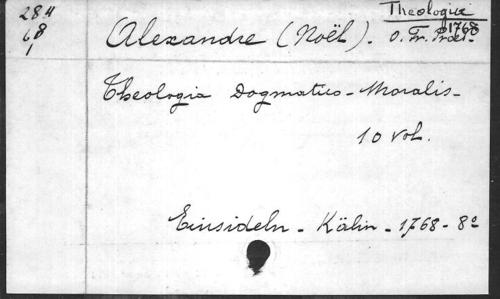 284
68
1
Theologie
1768
Alexandre (Noël). O. Fr. Praed.
Theologia Dogmatico-Moralis-
10 vol.
Einsideln - Kälin - 1768 - 8º